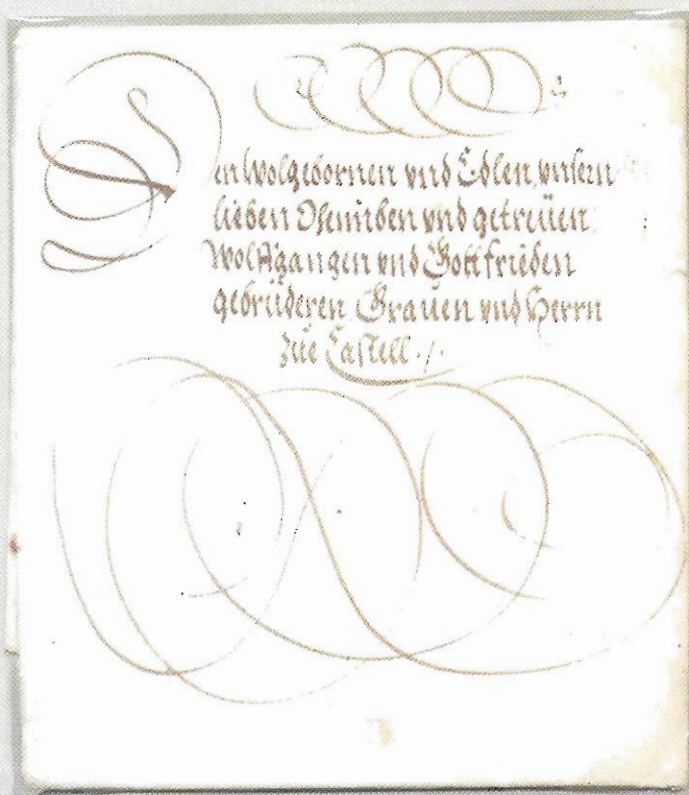 Den Wolgebornen vnd Edlen, vnsern
lieben Oheimben vnd getreüen
Wolffgangen vnd Gottfrieden
gebrüederen Grauen vnd Herrn
züe Castell ./.